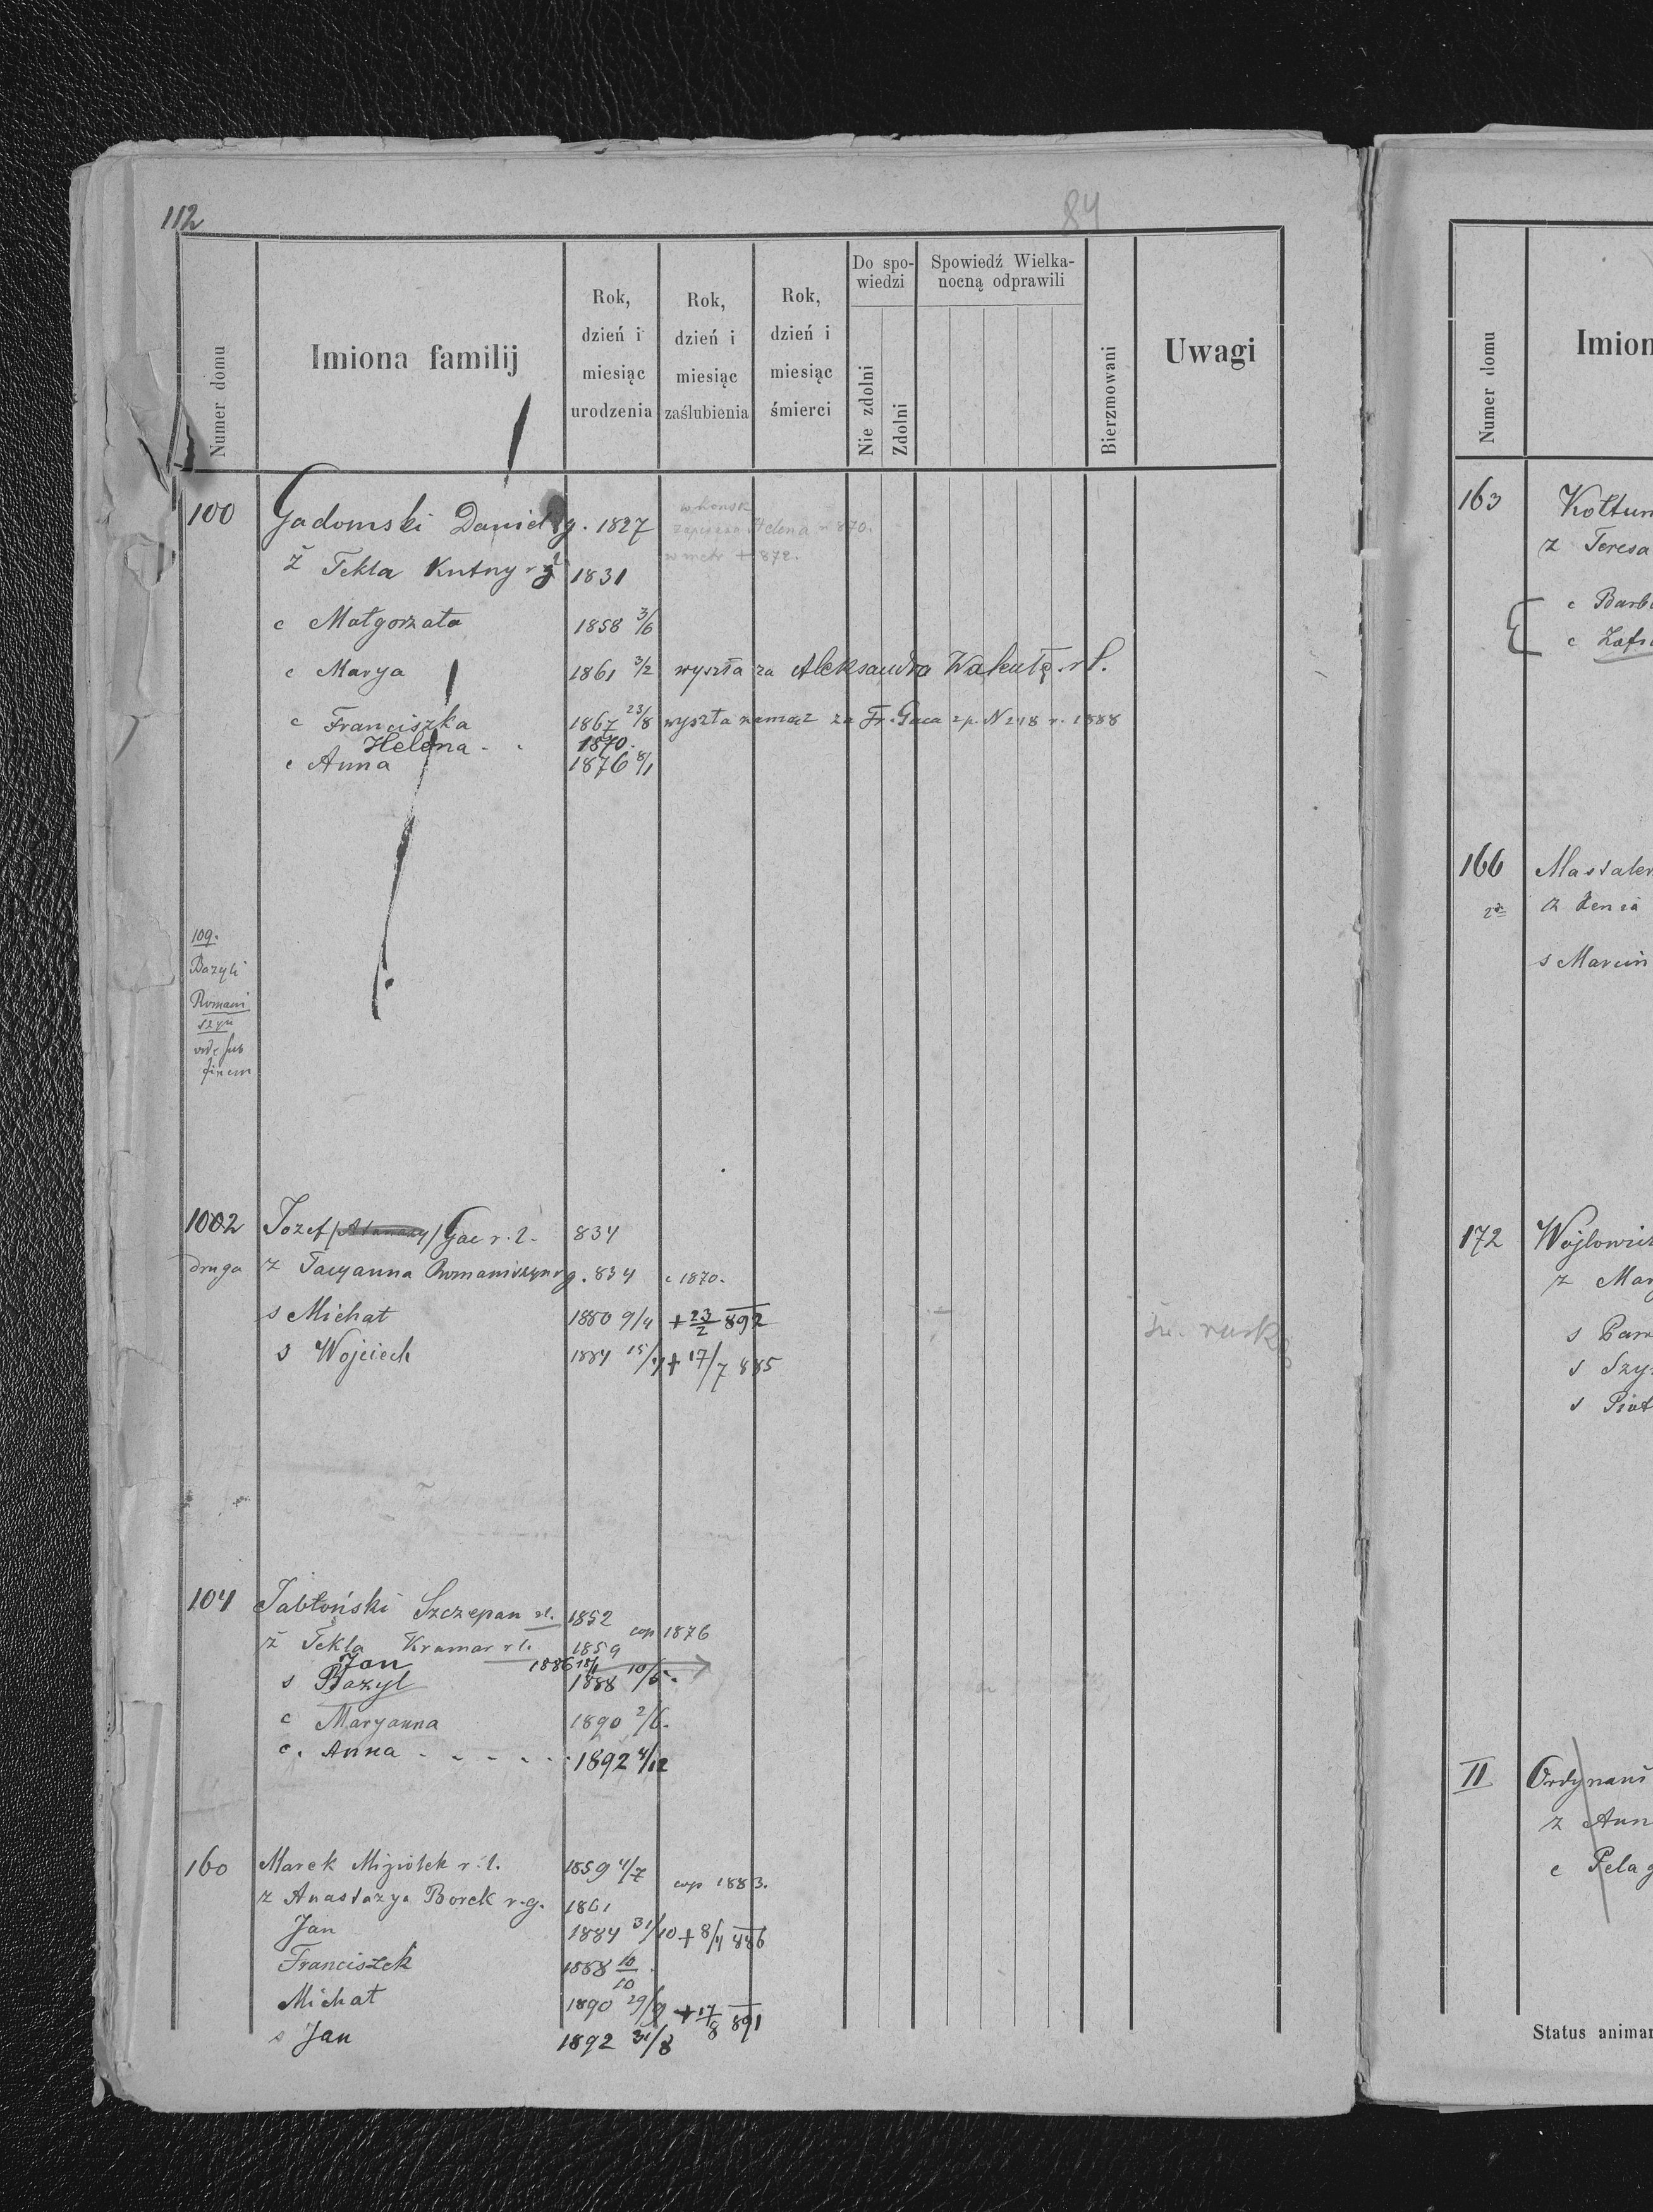 112
84
Numer domu
Imiona familij
Rok, dzień i miesiąc urodzenia
Rok, dzień i miesiąc zaślubienia
Rok, dzień i miesiąc śmierci
Do spowiedzi
Nie zdolni
Zdolni
Spowiedź Wielkanocną odprawili
Bierzmowani
Uwagi
100 Gadomski Daniel g. 1827
Helena r 870.
w metr + 872.
ż Tekla Kutny 1831
c Małgorzata 1858 3/6
c Marya 1861 3/2 wyszła za Aleksandra Wakułę r ł.
c Franciszka 1867 23/8 wyszła zamąż za Fr. Gaca N 218 r. 1888
Helena 1870.
c Anna 1876 8/1
109.
Bazyli
Romani
szyn
vide sub
finem
1002 Jozef / Atanazy / Gac r. l. 834
druga ż Tacyanna Romaniszyn r g. 834 c 1870.
s Michał 1880 9/4 + 23/2 892
s Wojciech 1884 15/4 + 17/7 885
104 Jabłoński Szczepan rl. 1852
cop 1876
ż Tekla Kramar r l. 1859
Jan 1886 18/1
s Bazyl 1888 10/5.
c Maryanna 1890 2/6.
c. Anna - - - - - 1892 4/12
160 Marek Miziołek r. l. 1859 4/7
cop 1883.
ż Anastazya Borek r. g. 1861
Jan 1884 31/10 + 8/4 886
Franciszek 1888 10/10
Michał 1890 29/9 + 17/8 891
s Jan 1892 31/8
Numer domu
Imion
163 Kołtun
ż Teresa
c Barb
c Zofi
166
s Marcin
172
ż Mar
s
s Szy
s Piot
II
ż Ann
c Pelag
Status animar